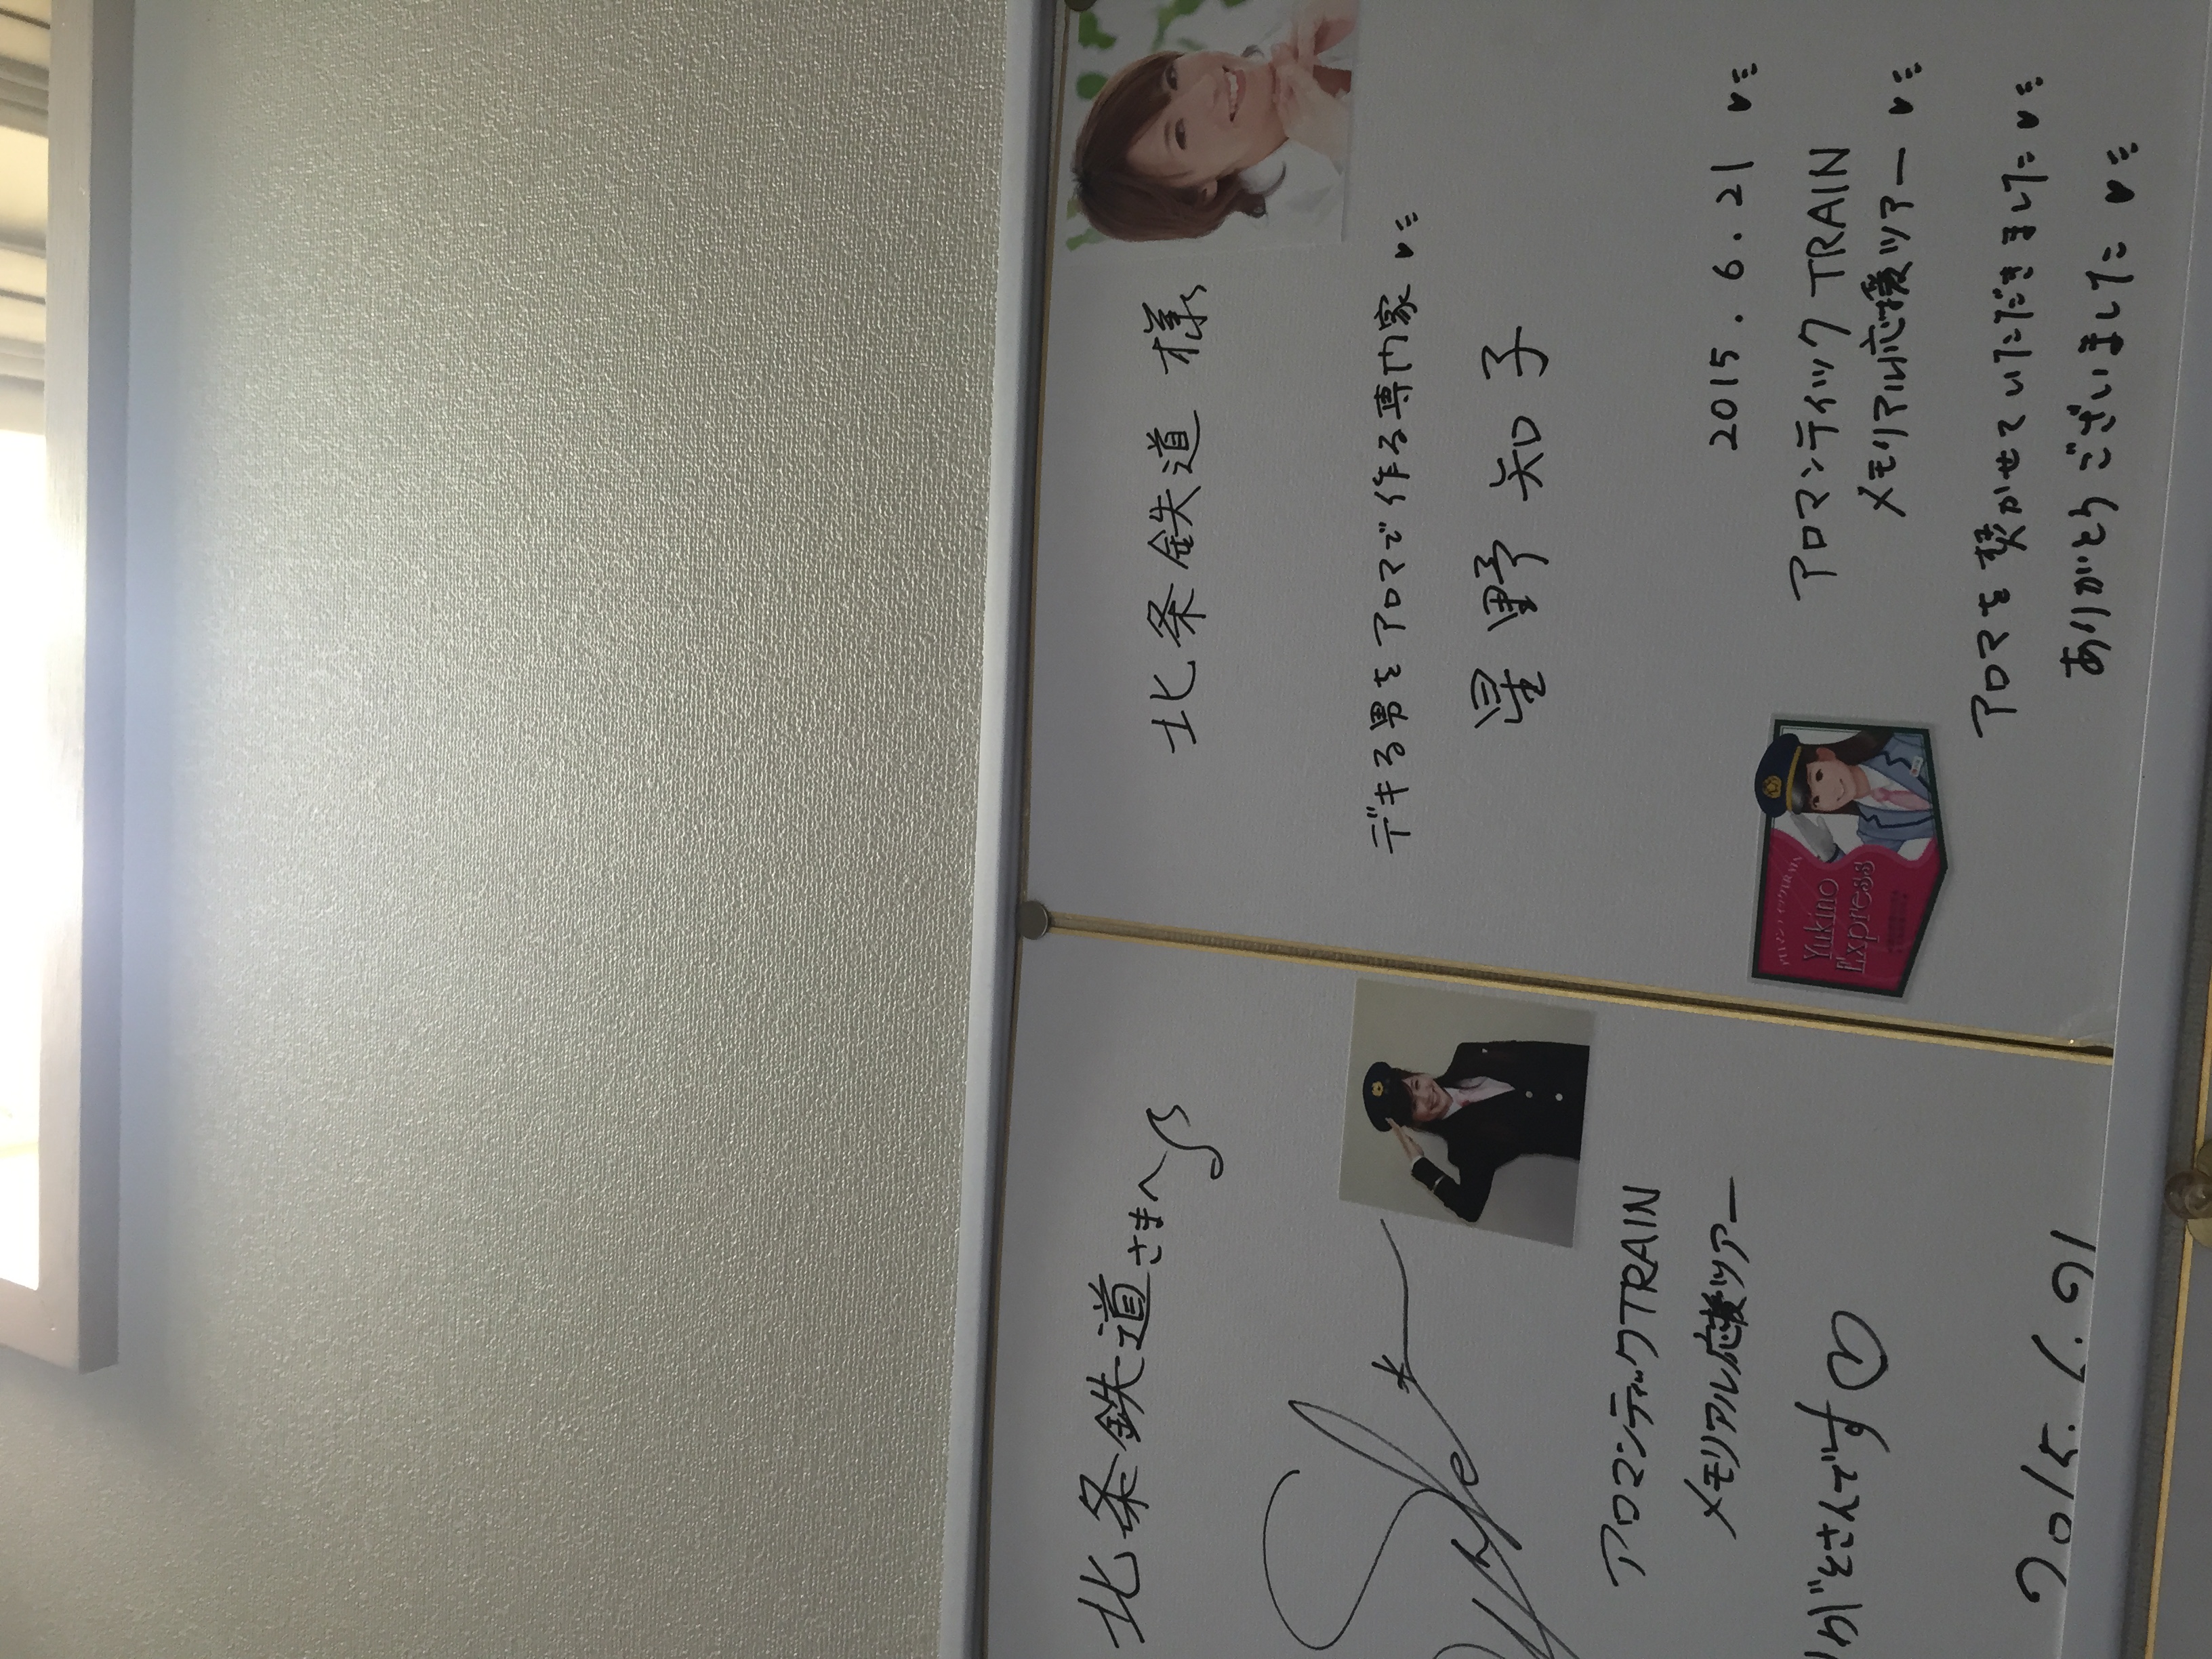 北条鉄道さまへ
アロマンティックTRAIN
メモリアル応援ツアー
がとさんです♡
2015.6.21
北条鉄道 様
デキる男をアロマで作る専門家
星野 知子
2015.6.21
アロマンティックTRAIN
メモリアル応援ツアー
アロマを焚かせていただきました
ありがとうございました
Yukino
Express